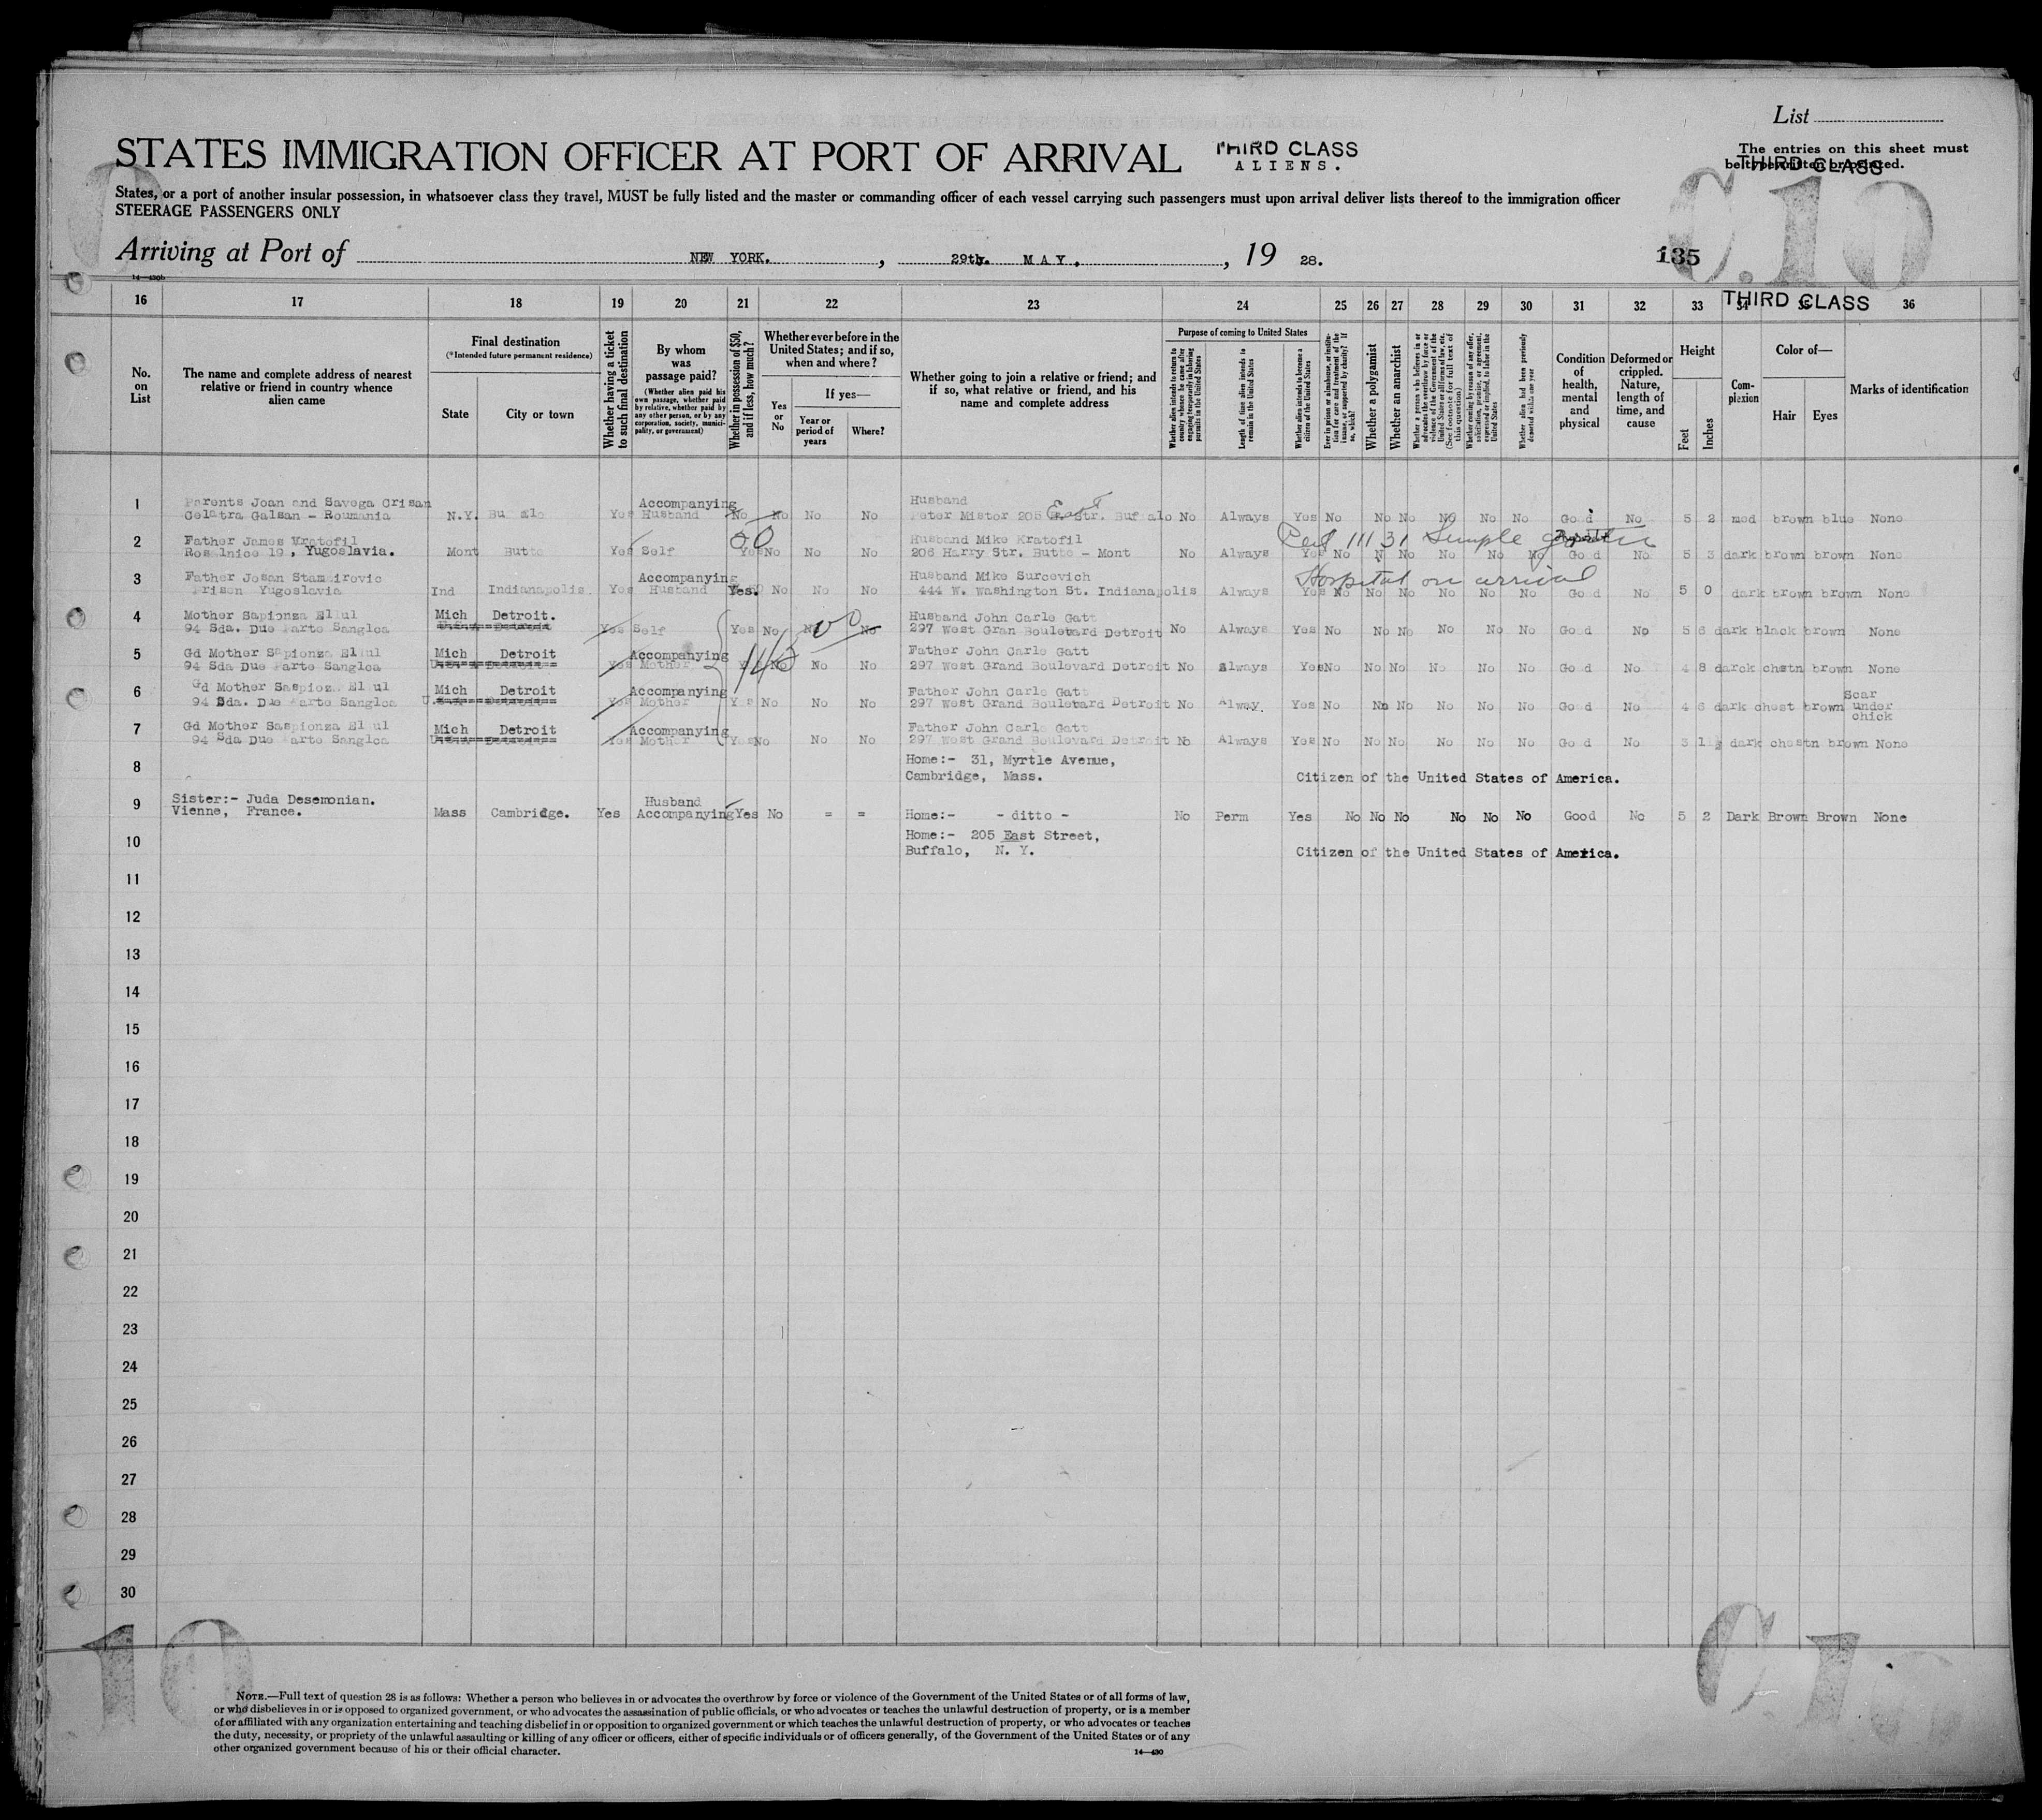 List
STATES IMMIGRATION OFFICER AT PORT OF ARRIVAL
THIRD CLASS
ALIENS.
The entries on this sheet must
be typewritten or printed.
THIRD CLASS
C.10
States, or a port of another insular possession, in whatsoever class they travel, MUST be fully listed and the master or commanding officer of each vessel carrying such passengers must upon arrival deliver lists thereof to the immigration officer
STEERAGE PASSENGERS ONLY
Arriving at Port of NEW YORK. , 29th. MAY. , 19 28.
135
14—430b
16 17 18 19 20 21 22 23 24 25 26 27 28 29 30 31 32 33 34 35 36
THIRD CLASS
No. on List
The name and complete address of nearest relative or friend in country whence alien came
Final destination
(*Intended future permanent residence)
State
City or town
Whether having a ticket to such final destination
By whom was passage paid?
(Whether alien paid his own passage, whether paid by relative, whether paid by any other person, or by any corporation, society, municipality, or government)
Whether in possession of $50, and if less, how much?
Whether ever before in the United States; and if so, when and where?
Yes or No
If yes—
Year or period of years
Where?
Whether going to join a relative or friend; and if so, what relative or friend, and his name and complete address
Purpose of coming to United States
Whether alien intends to return to country whence he came after engaging temporarily in laboring pursuits in the United States
Length of time alien intends to remain in the United States
Whether alien intends to become a citizen of the United States
Ever in prison or almshouse, or institution for care and treatment of the insane, or supported by charity? If so, which?
Whether a polygamist
Whether an anarchist
Whether a person who believes in or advocates the overthrow by force or violence of the Government of the United States or all forms of law, etc. (See footnote for full text of this question)
Whether coming by reason of any offer, solicitation, promise, or agreement, expressed or implied, to labor in the United States
Whether alien had been previously deported within one year
Condition of health, mental and physical
Deformed or crippled. Nature, length of time, and cause
Height
Feet
Inches
Complexion
Color of—
Hair
Eyes
Marks of identification
1 Parents Joan and Savega Crisan Accompanying Husband
Celatra Galsan - Roumania N.Y. Yes Husband No No No No Peter Mistor 205 East Str. Buffalo No Always Yes No No No No No No Good No 5 2 med brown blue None
50
2 Father James Kratofil Husband Mike Kratofil Cert 111 31 Simple goitre
Rosalnice 19, Yugoslavia. Mont Butte Yes Self Yes No No No 206 Harry Str. Butte - Mont No Always Yes No N No No No No Good No 5 3 dark brown brown None
3 Father Josan Stamairovic Accompanying Husband Mike Surcevich Hospital on arrival
Prison Yugoslavia Ind Indianapolis. Yes Husband Yes. No No No 444 W. Washington St. Indianapolis Always Yes No No No No No No Good No 5 0 dark brown brown None
4 Mother Sapionza Ellul Mich Detroit. Husband John Carle Gatt
94 Sda. Due Parte Sanglea Yes Self Yes No No No 297 West Gran Boulevard Detroit No Always Yes No No No No No No Good No 5 6 dark black brown None
5 Gd Mother Sapionza Ellul Mich Detroit Accompanying Father John Carle Gatt
94 Sda Due Parte Sanglea Yes Mother Yes No No No 297 West Grand Boulevard Detroit No Always Yes No No No No No No Good No 4 8 darck chstn brown None
6 Gd Mother Saspionza Ellul Mich Detroit Accompanying Father John Carle Gatt Scar
94 Sda. Due Parte Sanglea Yes Mother Yes No No No 297 West Grand Boulevard Detroit No Alway. Yes No No No No No No Good No 4 6 dark chest brown under
chick
7 Gd Mother Saspionza Ellul Mich Detroit Accompanying Father John Carle Gatt
94 Sda Due Parte Sanglea Yes Mother Yes No No No 297 West Grand Boulevard Detroit No Always Yes No No No No No No Good No 3 11½ dark chestn brown None
8 Home:- 31, Myrtle Avenue,
Cambridge, Mass. Citizen of the United States of America.
9 Sister:- Juda Desemonian. Husband
Vienne, France. Mass Cambridge. Yes Accompanying Yes No = = Home:- - ditto - No Perm Yes No No No No No No Good No 5 2 Dark Brown Brown None
10 Home:- 205 East Street,
Buffalo, N. Y. Citizen of the United States of America.
11
12
13
14
15
16
17
18
19
20
21
22
23
24
25
26
27
28
29
30
10
C.10
NOTE.—Full text of question 28 is as follows: Whether a person who believes in or advocates the overthrow by force or violence of the Government of the United States or of all forms of law,
or who disbelieves in or is opposed to organized government, or who advocates the assassination of public officials, or who advocates or teaches the unlawful destruction of property, or is a member
of or affiliated with any organization entertaining and teaching disbelief in or opposition to organized government or which teaches the unlawful destruction of property, or who advocates or teaches
the duty, necessity, or propriety of the unlawful assaulting or killing of any officer or officers, either of specific individuals or of officers generally, of the Government of the United States or of any
other organized government because of his or their official character.
14—430